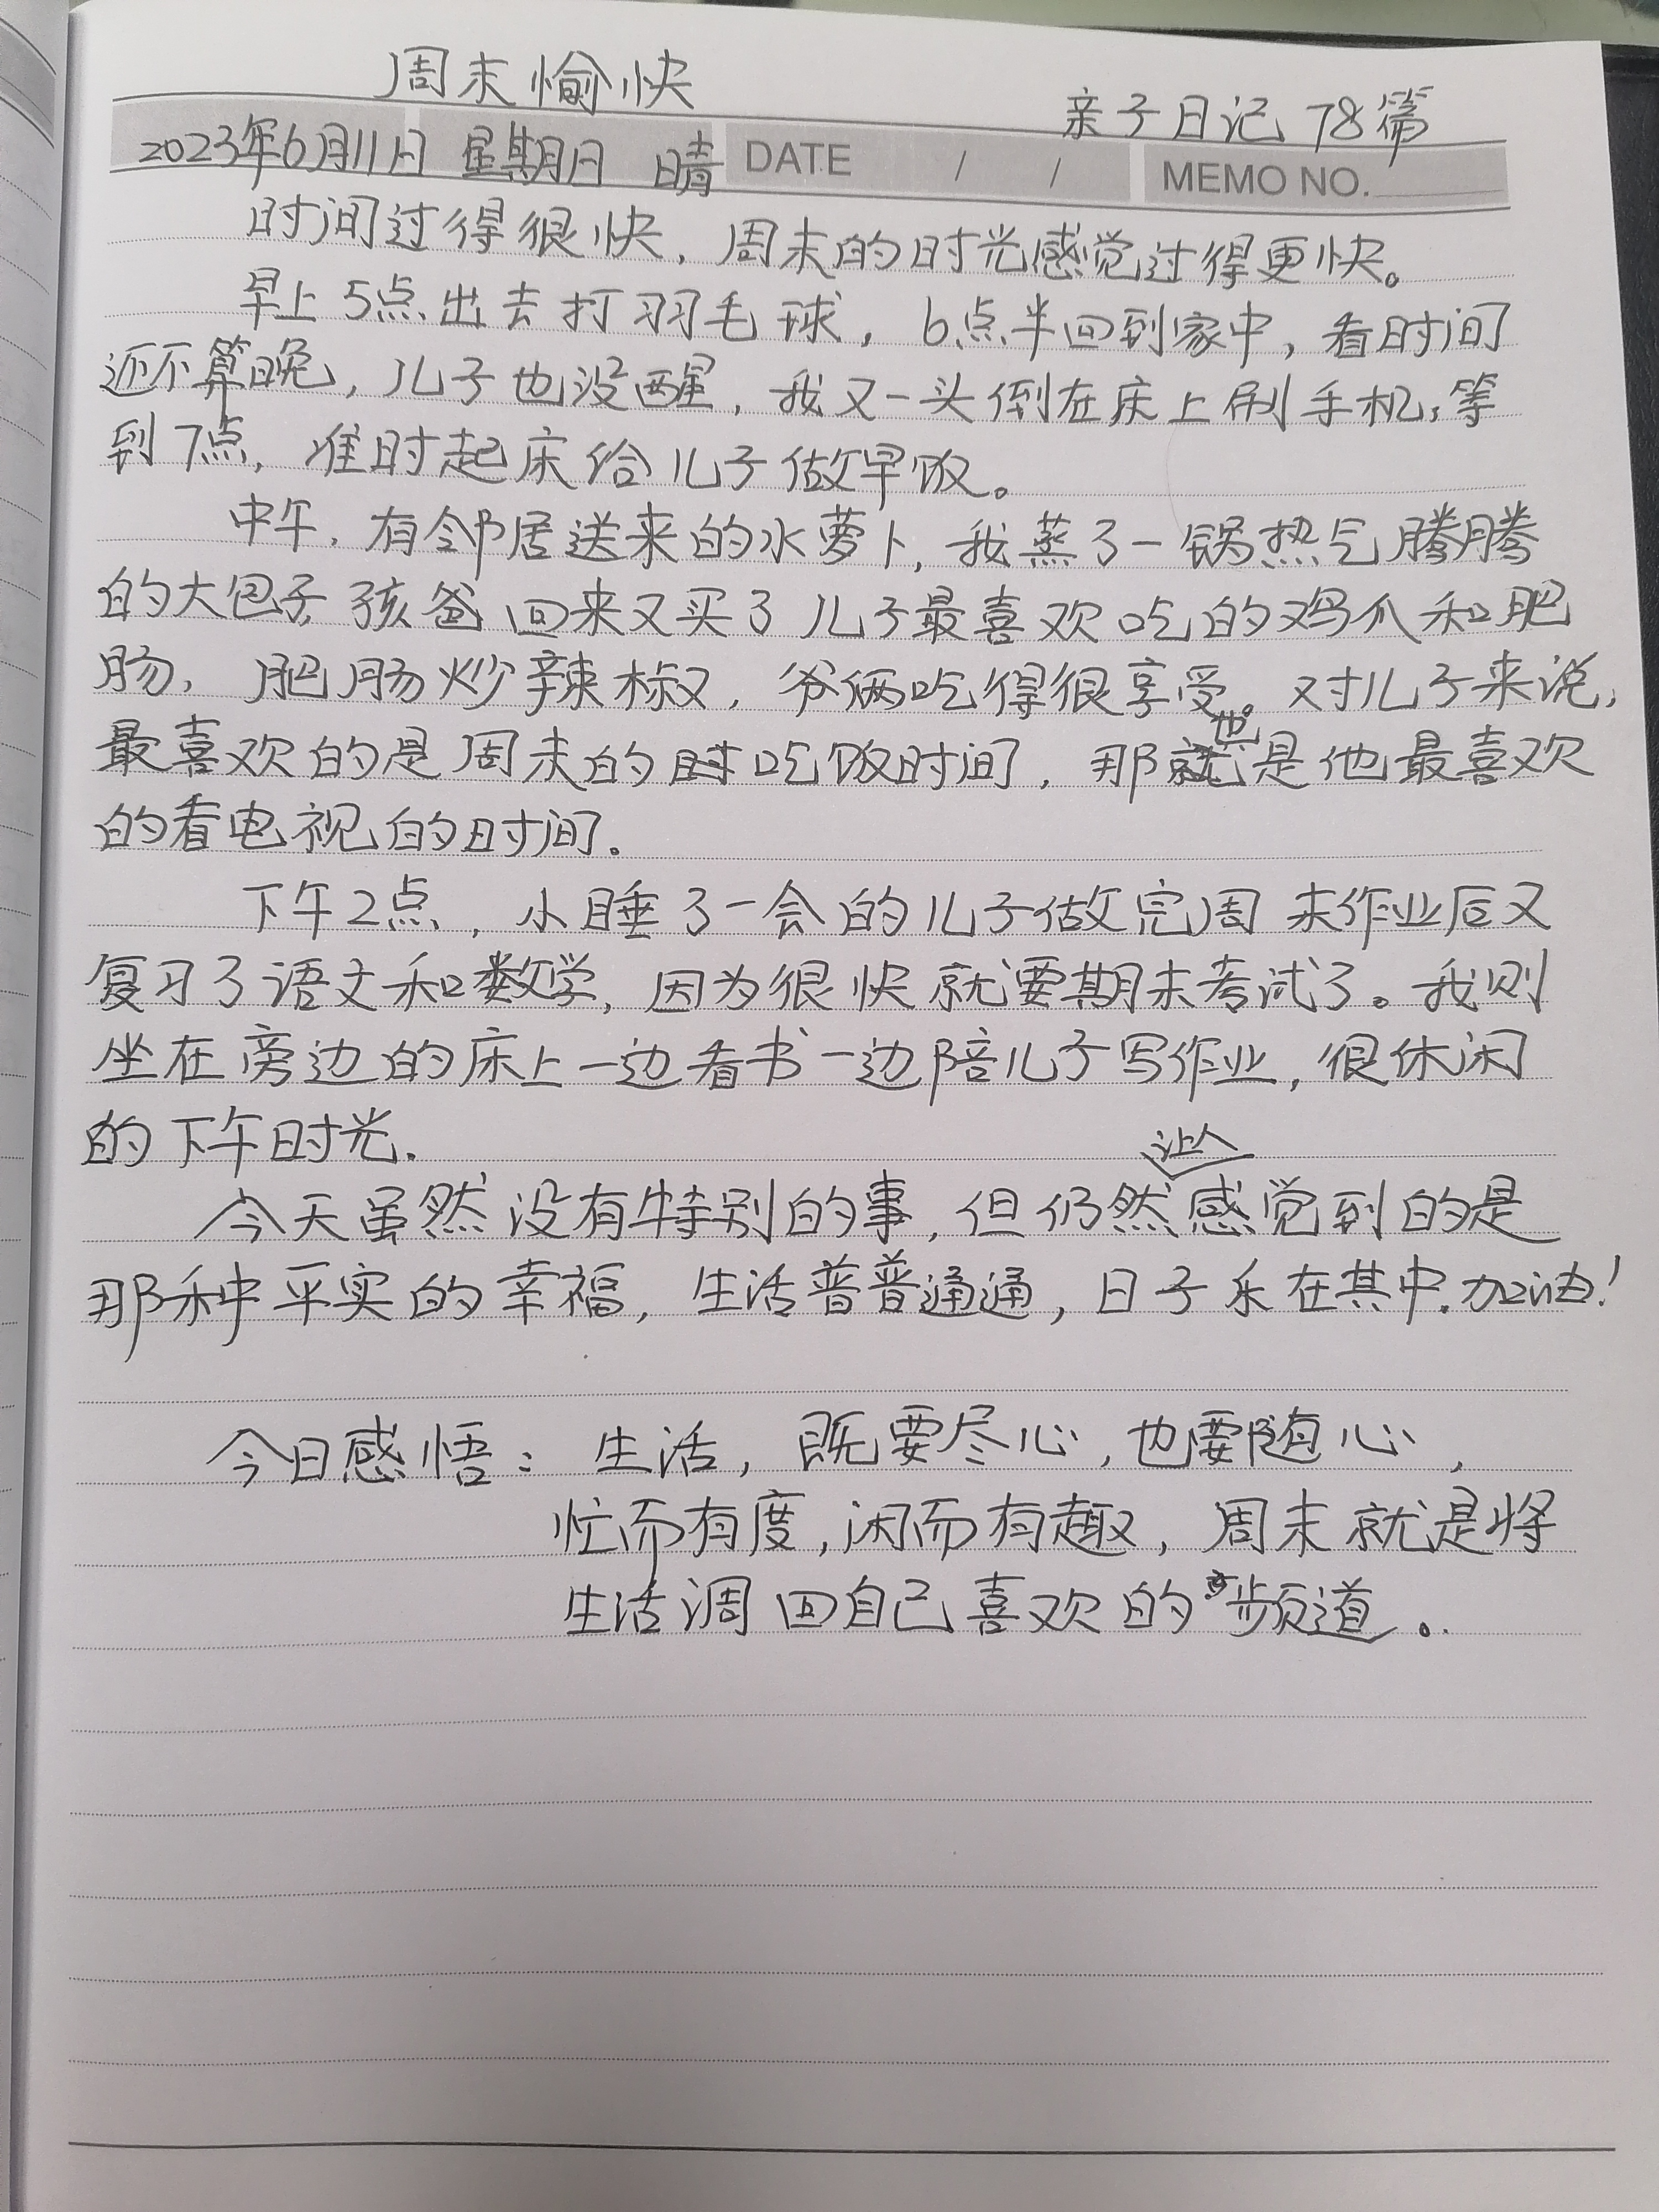 周末愉快
亲子日记 78篇
2023年6月11日 星期日 晴 DATE / / MEMO NO.
时间过得很快，周末的时光感觉过得更快。
早上5点出去打羽毛球，6点半回到家中，看时间
还不算晚，儿子也没醒，我又一头倒在床上刷手机，等
到7点，准时起床给儿子做早饭。
中午，有邻居送来的水萝卜，我蒸了一锅热气腾腾
的大包子，孩爸回来又买了儿子最喜欢吃的鸡爪和肥
肠，肥肠炒辣椒，爷俩吃得很享受。对儿子来说，
最喜欢的是周末的吃饭时间，那也是他最喜欢
的看电视的时间.
下午2点，小睡了一会的儿子做完周末作业后又
复习了语文和数学，因为很快就要期末考试了。我则
坐在旁边的床上一边看书一边陪儿子写作业，很休闲
的下午时光.
今天虽然没有特别的事，但仍然让人感觉到的是
那种平实的幸福，生活普普通通，日子乐在其中.加油！
今日感悟：生活，既要尽心，也要随心，
忙而有度，闲而有趣，周末就是将
生活调回自己喜欢的频道。